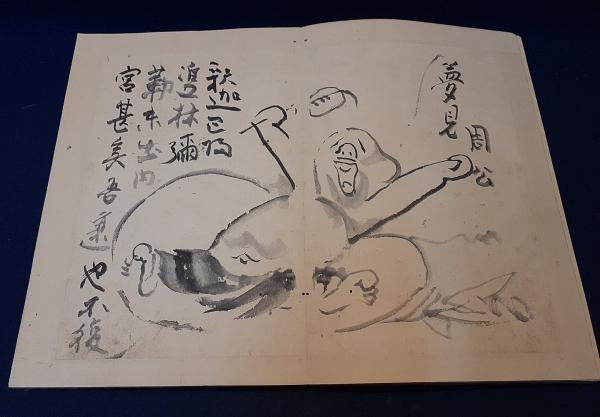 夢見
周公
釈迦已隠
双林彌
勒未出内
宮甚矣吾衰也不復